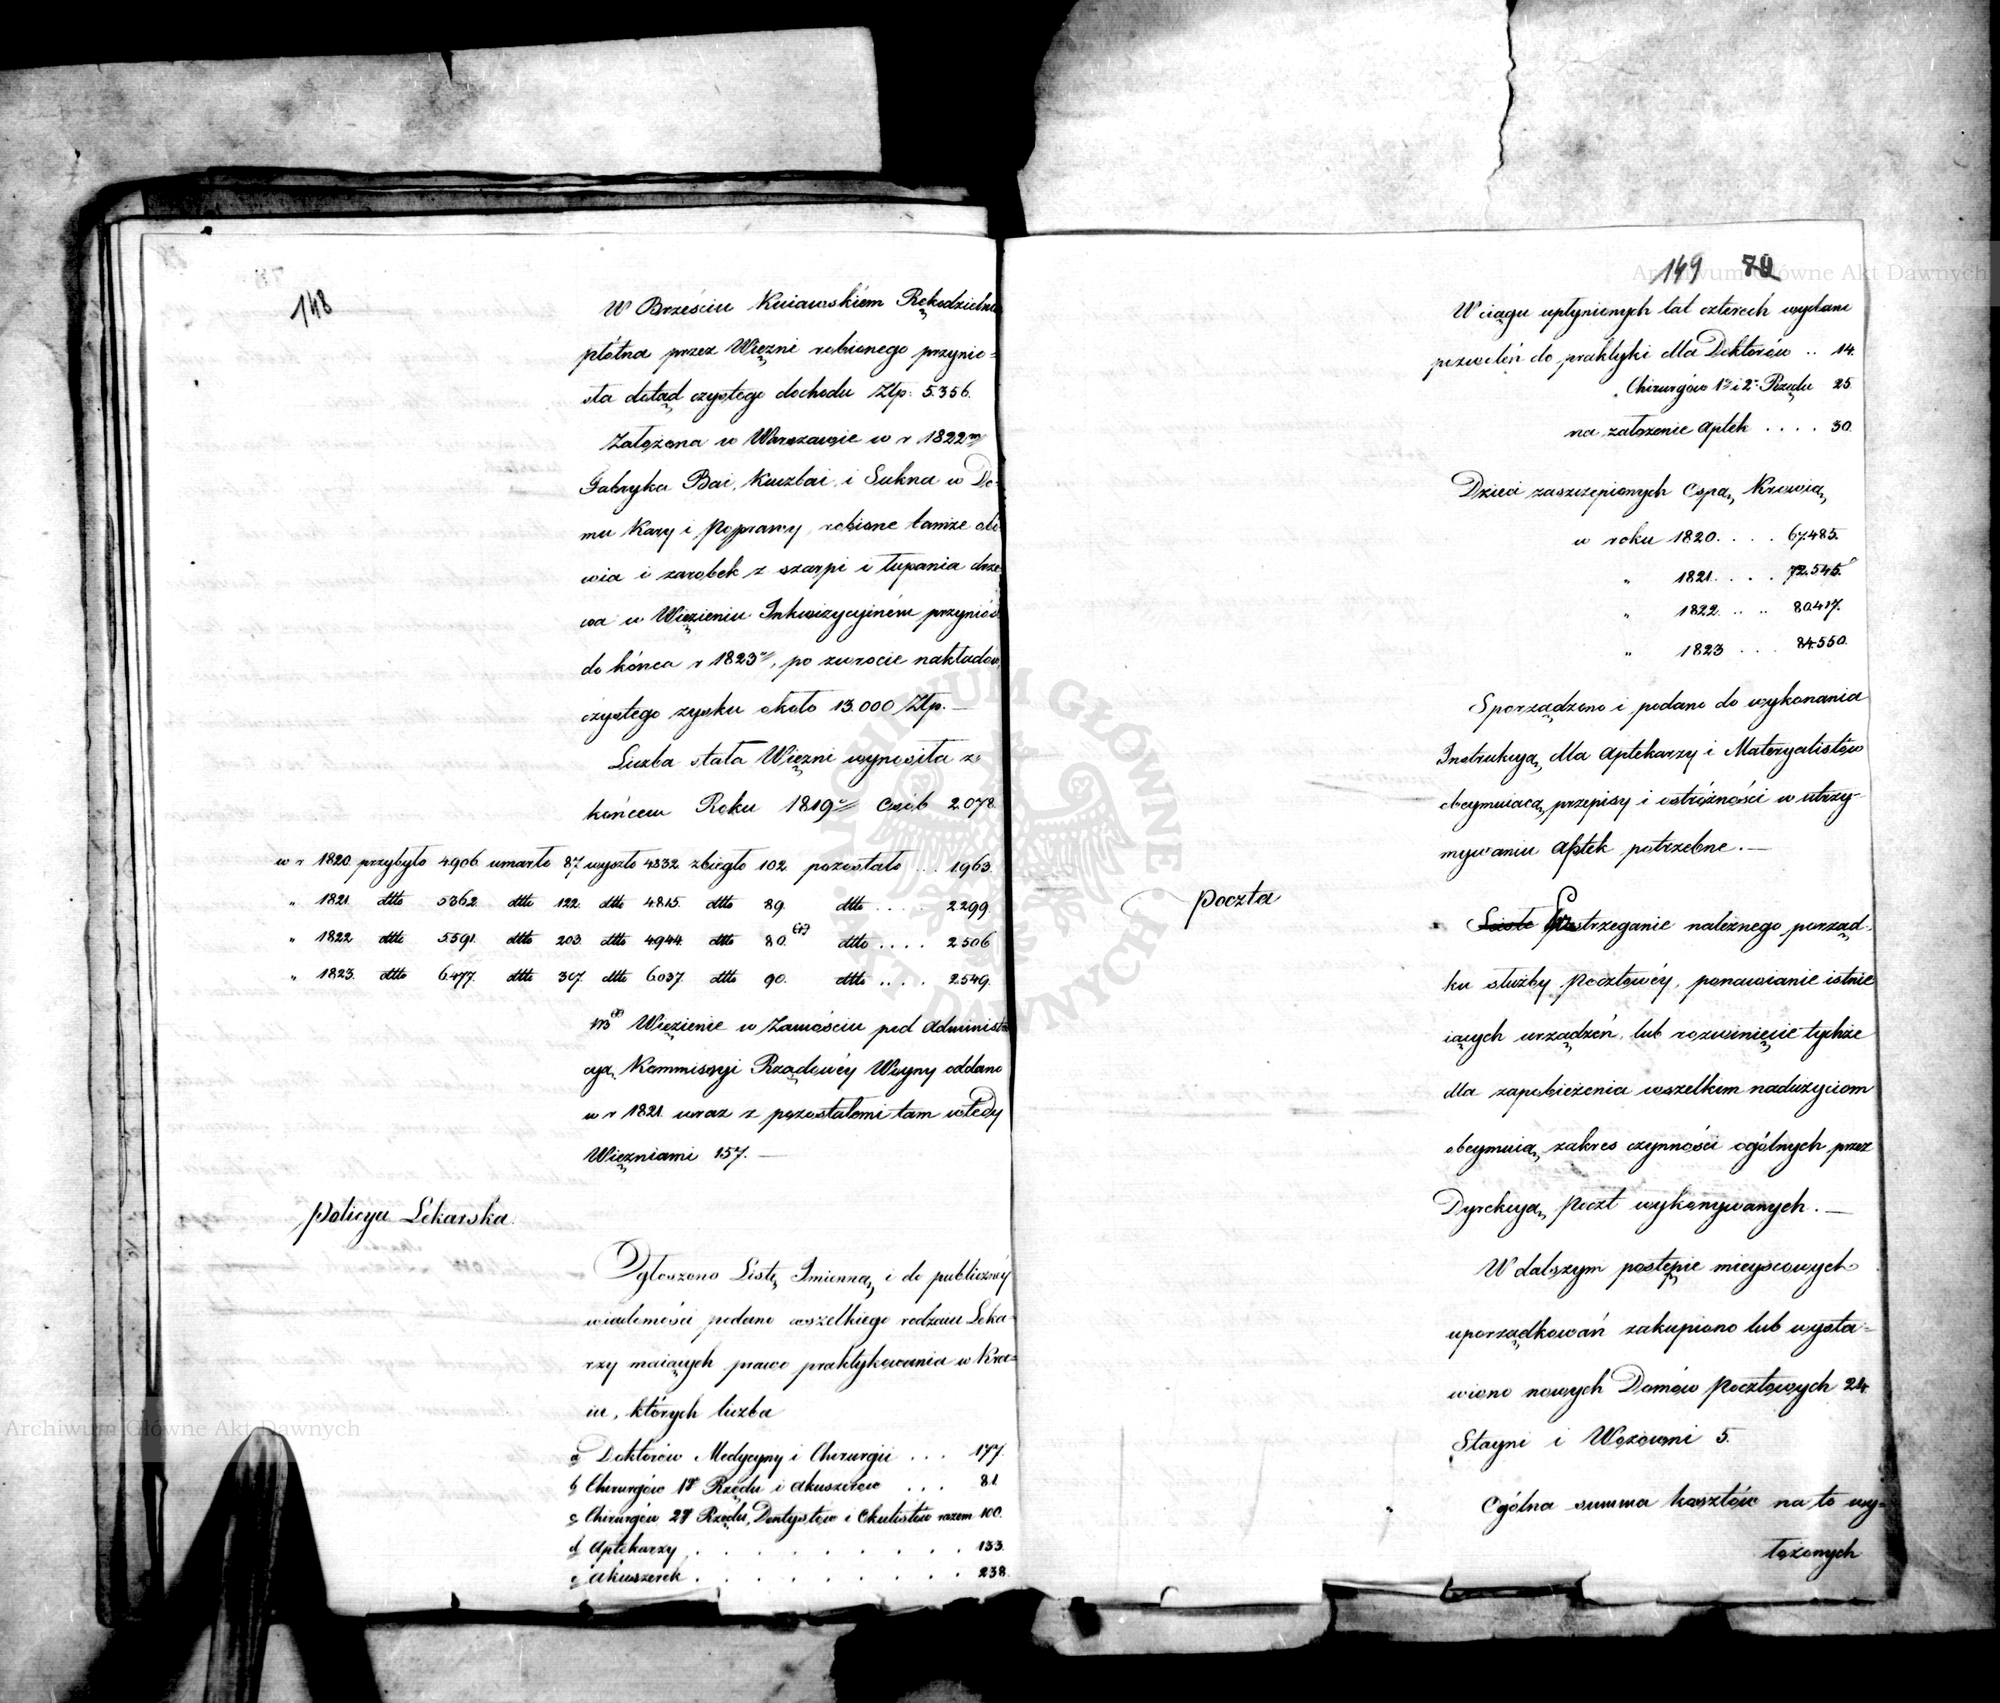 148
W Brześciu Kuiawskiém Rękodzielnia
płótna przez Więzni robionego przynio=
sła dotąd czystego dochodu Złp: 5.356.
Założona w Warszawie w r 1822
Fabryka Bai, Kuczbai, i Sukna w Do-
mu Kary i Poprawy, robione tamże obó
wia i zarobek z szarpi i łupania drze
wa w Więzieniu Inkwizycyiném przyniósł
do końca r 1823, po zwrocie nakładów,
czystego zysku około 13.000 Złp. —
Liczba stała Więzni wynosiła z
końcem Roku 1819 Osób 2.078.
w r 1820 przybyło 4906 umarło 87 wyszło 4832 zbiegło 102 pozostało ... 1.963.
„ 1821 dtto 5362 dtto 122 dtto 4.815. dtto 89. dtto .... 2299.
„ 1822 dtto 5591. dtto 203. dtto 4944. dtto 80. dtto .... 2506
„ 1823. dtto 6.477. dtto 307. dtto 6.037. dtto 90. dtto .... 2.549.
Więzienie w Zamościu pod Administra
cyą Kommissyi Rządowéy Woyny oddano
w r 1821 wraz z pozostałemi tam wtedy
Więzniami 157. —
Policya Lekarska.
Ogłoszono Listę Imienną i do publicznéy
wiadomości podano wszelkiego rodzaiu Leka-
rzy maiących prawo praktykowania w Kra=
iu, których liczba
a Doktorów Medycyny i Chirurgii ... 177.
b Chirurgów 1go Rzędu i Akuszerów ... 81.
c Chirurgów 2go Rzędu, Dentystów i Okulistów razem 100.
d Aptekarzy . . . . . . . . . 133.
e Akuszerek . . . . . . . . . 238.
149 70
W ciągu upłynionych lat czterech wydano
pozwoleń do praktyki dla Doktorów .. 14.
Chirurgów 1o i 2o Rzędu 25
na założenie Aptek .... 30.
Dzieci zaszczepionych Ospą Krowią
w roku 1820. ... 67.485.
„ 1821. ... 72.545.
„ 1822. .. .. 80.417.
„ 1823 ... 84.550.
Sporządzono i podano do wykonania
Instrukcyą dla Aptekarzy i Materyalistów
obeymuiącą przepisy i ostrożności w utrzy-
mywaniu Aptek potrzebne. —
Poczta
Przestrzeganie należnego porząd-
ku służby Pocztowéy, ponawianie istnie
iących urządzeń, lub rozwinięcie tychże
dla zapobieżenia wszelkim nadużyciom
obeymuią zakres czynności ogólnych przez
Dyrekcyą Poczt wykonywanych. —
W dalszym postępie mieyscowych
uporządkowań zakupiono lub wysta=
wiono nowych Domów Pocztowych 24.
Stayni i Wozowni 5.
Ogólna summa kosztów na to wy=
łożonych